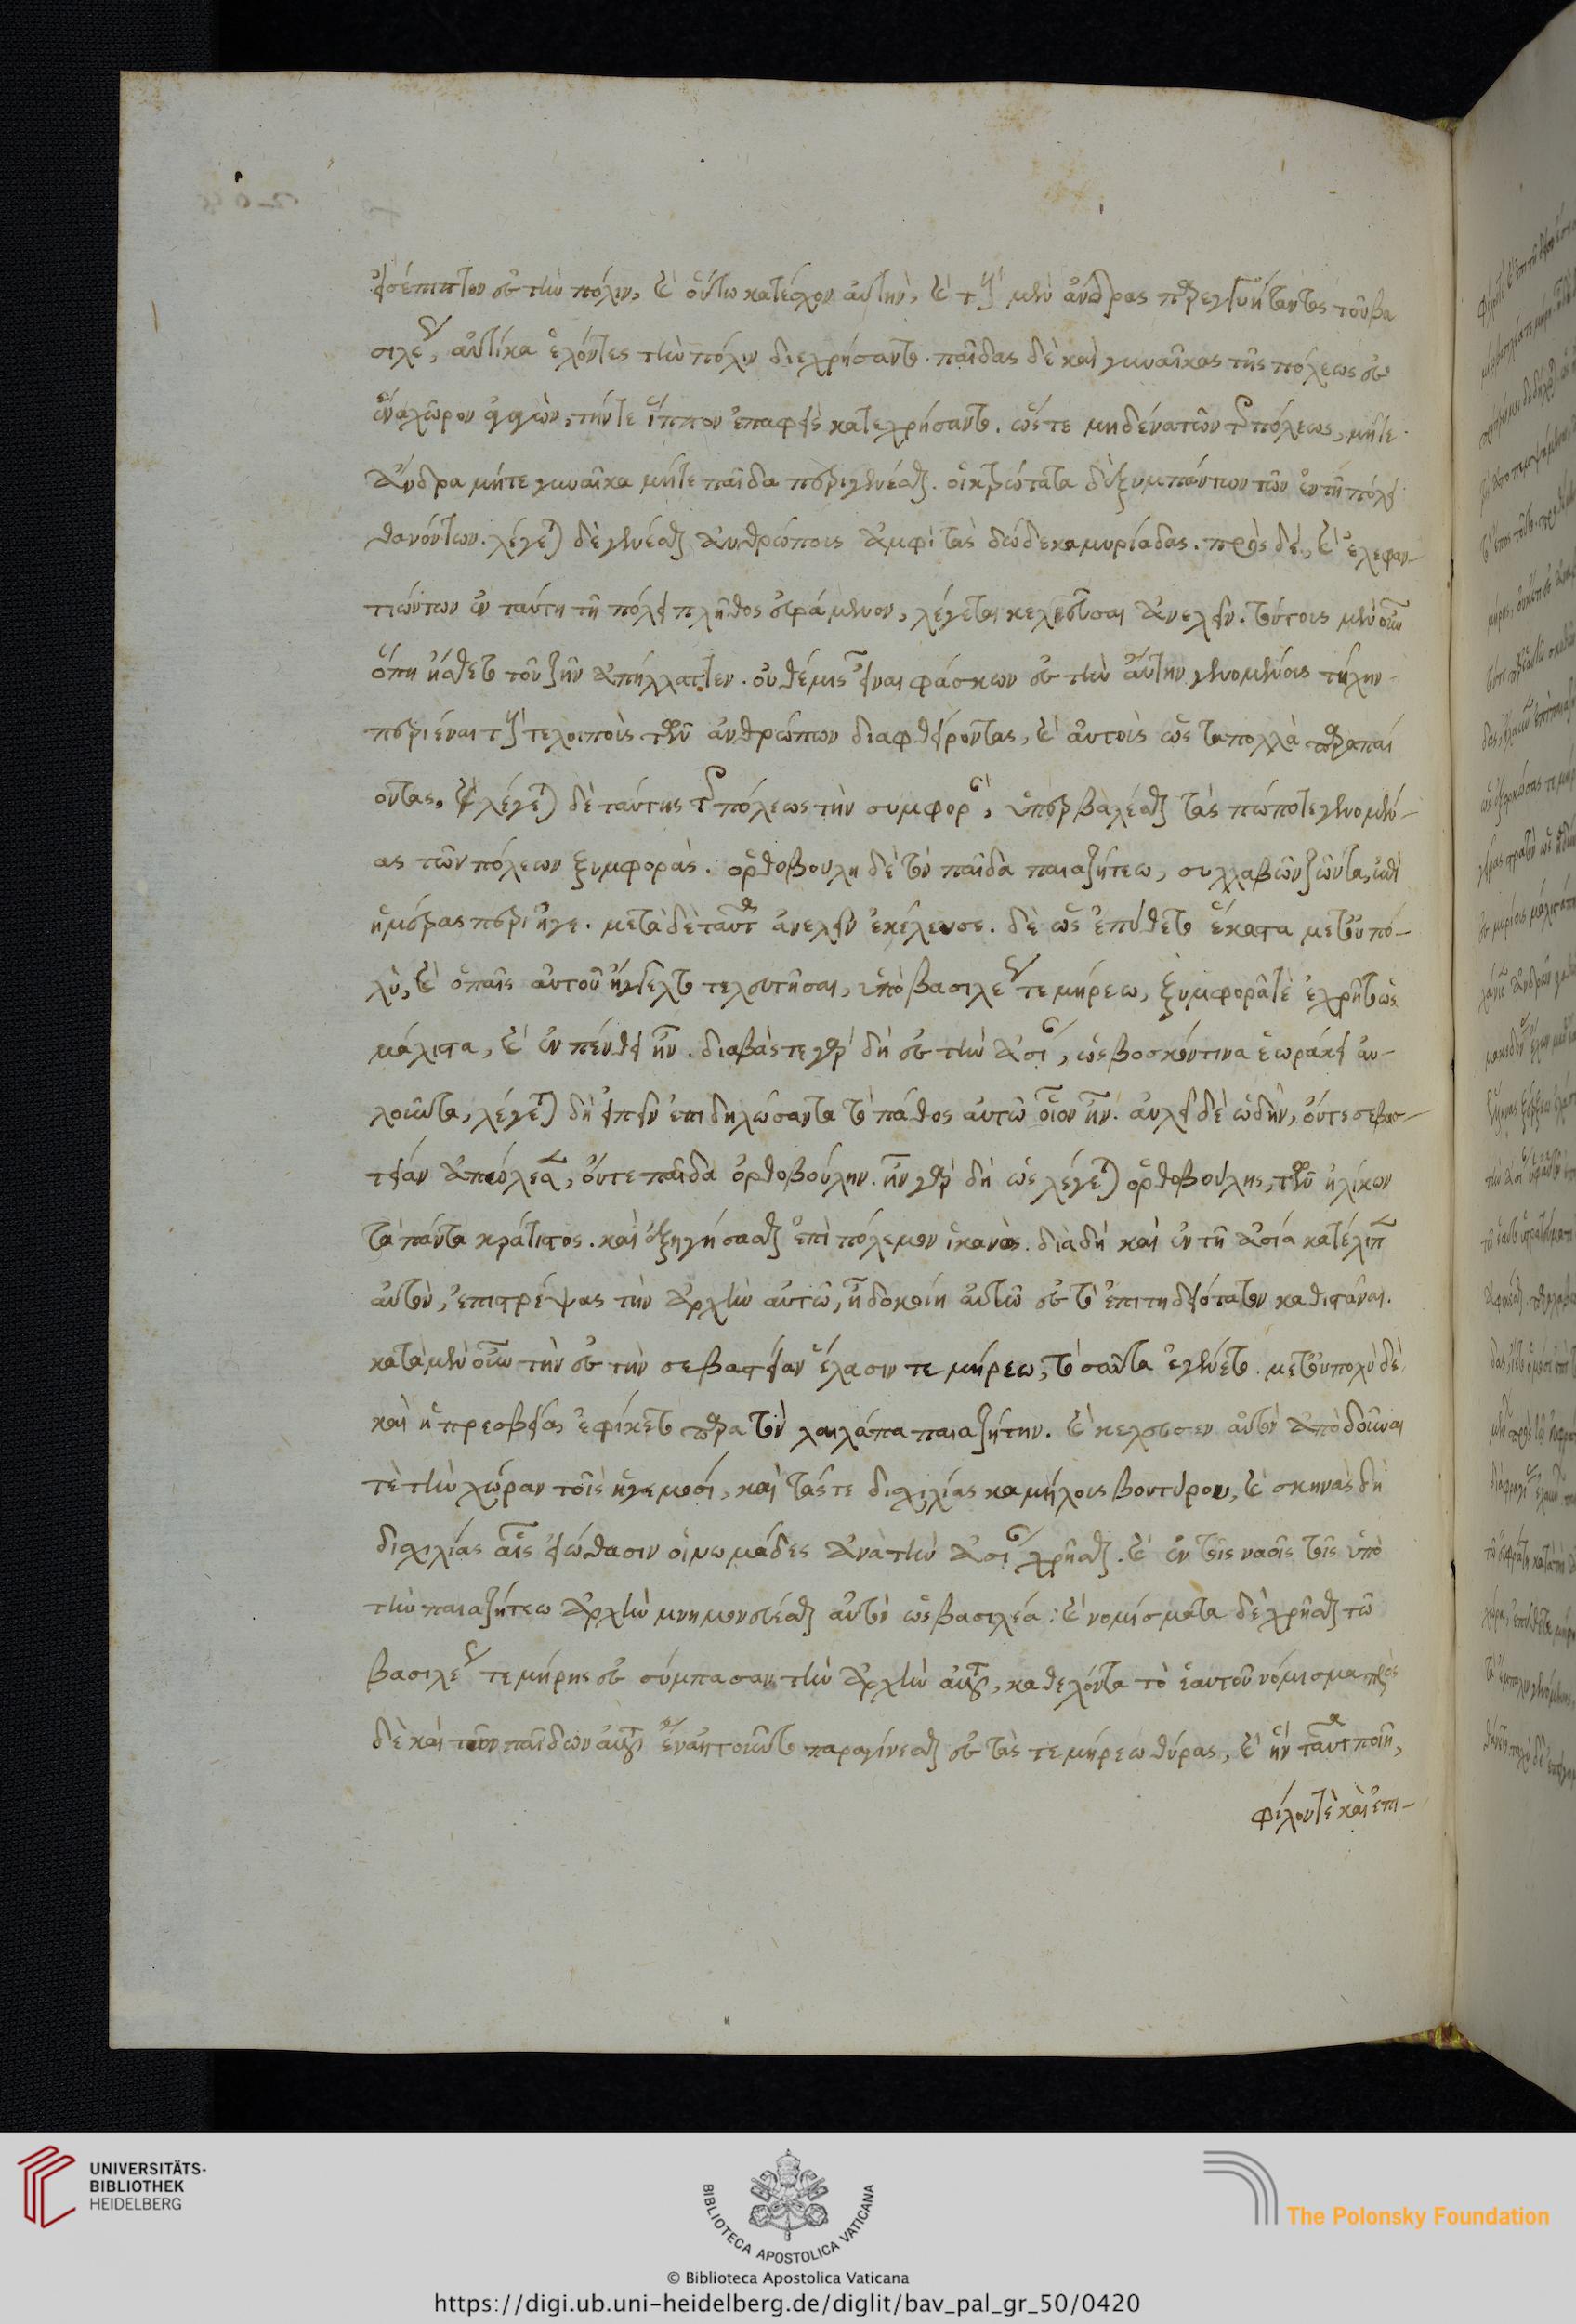 εἰσέπιπτον ἐς τὴν πόλιν, καὶ οὕτω κατέσχον αὐτήν, καὶ τοὺς μὲν ἄνδρας τοῦ βα
σιλέως, αὐτίκα ἑλόντες τὴν πόλιν διεχρήσαντο. παῖδας δὲ καὶ γυναῖκας τῆς πόλεως ἐς
ἕνα χῶρον τήντε ἵππον ἐπαφεὶς κατεχρήσαντο. ὥστε μηδένα τῶν τῆς πόλεως, μήτε
ἄνδρα μήτε γυναῖκα μήτε παῖδα περιγενέσθαι. οἰκτρώτατα δὲ ξυμπάντων τῶν ἐν τῆ πόλει
θανόντων. λέγεται δὲ γενέσθαι ἀνθρώποις ἀμφὶ τὰς δώδεκα μυριάδας. πρὸς δὲ, καὶ ἐλεφαν-
τιώντων ἐν ταύτη τῆ πόλει πλῆθος εὑράμενον, λέγεται κελεῦσαι ἀνελεῖν. τούτοις μὲν οὖν
ὅπη ἤσθετο τοῦ ζῆν ἀπήλλαττεν. οὐ θέμις εἶναι φάσκων ἐς τὴν αὐτὴν γενομένοις τύχην
περιιέναι τούς τε λοιποὺς τῶν ἀνθρώπων διαφθείροντας, καὶ αὐτοὺς ὡς τὰ πολλὰ παραπαί
οντας. καὶ λέγεται δὲ ταύτης τῆς πόλεως τὴν συμφορὰν, ὑπερβαλέσθαι τὰς πώποτε γενομέν-
ας τῶν πόλεων ξυμφοράς. ὀρθοβούλη δὲ τὸν παῖδα παιαζήτεω, συλλαβὼν ζῶντα,
ἡμέρας περιῆγε. μετὰ δὲ ταῦτα ἀνελεῖν ἐκέλευσε. δὲ ὡς ἐπύθετο ἕκαστα μετοῦ πο-
λὺ, καὶ ὁ παῖς αὐτοῦ ἤγγελτο τελευτῆσαι, ὑπὸ βασιλέως τεμήρεω, ξυμφορᾶτὲ ἐχρῆτο ὡς
μάλιστα, καὶ ἐν πένθει ἦν. διαβάς τε γὰρ δὴ ἐς τὴν ἀσίαν, ὡς βοσκόν τινα ἑωράκει αὐ-
λοῦντα, λέγεται δὴ εἰπεῖν ἐπιδηλώσαντα τὸ πάθος αὐτῶ οἷον ἦν. αὐλεῖ δὲ ὠδὴν, οὔτε σεβασ-
τείαν ἀπώλεσα, οὔτε παῖδα ὀρθοβούλην. ἦν γὰρ δὴ ὡς λέγεται ὀρθοβούλης, τῶν ἡλίκων
τὰ πάντα κράτιστος. καὶ ἐξηγήσασθαι ἐπὶ πόλεμον ἱκανὸς. διὰ δὴ καὶ ἐν τῆ ἀσία κατέλιπεν
αὐτὸν, ἐπιτρέψας τὴν ἀρχὴν αὐτῶ, ἧ δοκοίη αὐτῶ ἐς τὸ ἐπιτηδειότατον καθιστάναι.
κατὰ μὲν οὖν τὴν ἐς τὴν σεβαστείαν ἔλασιν τεμήρεω, τὸσαῦτα ἐγένετο. μετοὐπολὺ δὲ
καὶ ἡ πρεσβεία ἐφίκετο παρὰ τὸν λαιλάπα παιαζήτην. καὶ κελεύσεν αὐτὸν ἀποδοῦναι
τὲ τὴν χώραν τοῖς ἡγεμόσι, καὶ τάςτε δισχιλίας καμήλοις βουτύρου, καὶ σκηνὰς δὴ
δισχιλίας αἷς εἰώθασιν οἱ νωμάδες ἀνὰ τὴν ἀσίαν χρῆσθαι. καὶ ἐν τοῖς ναοῖς τοῖς ὑπὸ
τὴν παιαζήτεω ἀρχὴν μνημονεύεσθαι αὐτὸν ὡς βασιλέα: καὶ νομίσματα δὲ χρῆσθαι τῶ
βασιλέως τεμήρης ἐς σύμπασαν τὴν ἀρχὴν αὐτοῦ, καθελόντα τὸ ἑαυτοῦ νόμισμα πρὸς
δὲ καὶ τῶν παίδων αὐτοῦ ἕνα ἠτοιοῦτο παραγίνεσθαι ἐς τὰς τεμήρεω θύρας, καὶ ἢν ταῦτα ποιῆ,
φίλον τὲ καὶ ἐπι-
UNIVERSITÄTS-
BIBLIOTHEK
HEIDELBERG
BIBLIOTECA APOSTOLICA VATICANA
The Polonsky Foundation
© Biblioteca Apostolica Vaticana
https://digi.ub.uni-heidelberg.de/diglit/bav_pal_gr_50/0420